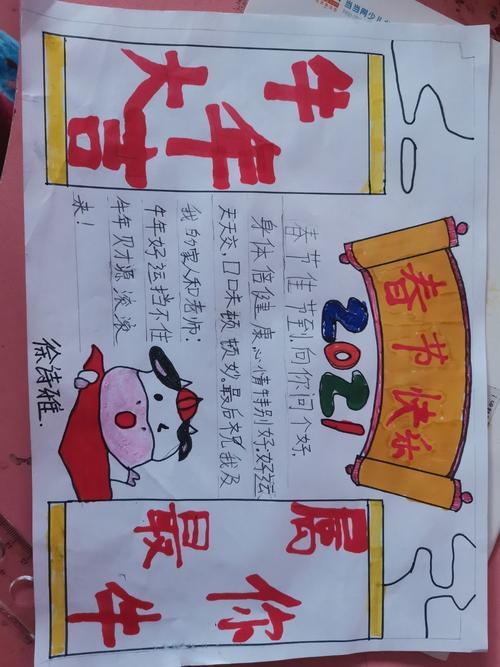 春节快乐
2021
牛年大吉
属你最牛
春节佳节到,向你问个好,
身体倍健康,心情特别好.好运
天天交,口味顿顿妙.最后祝我及
我的家人和老师:
牛年好运挡不住
牛年财源滚滚
来!
徐诗雅.
当当网少儿